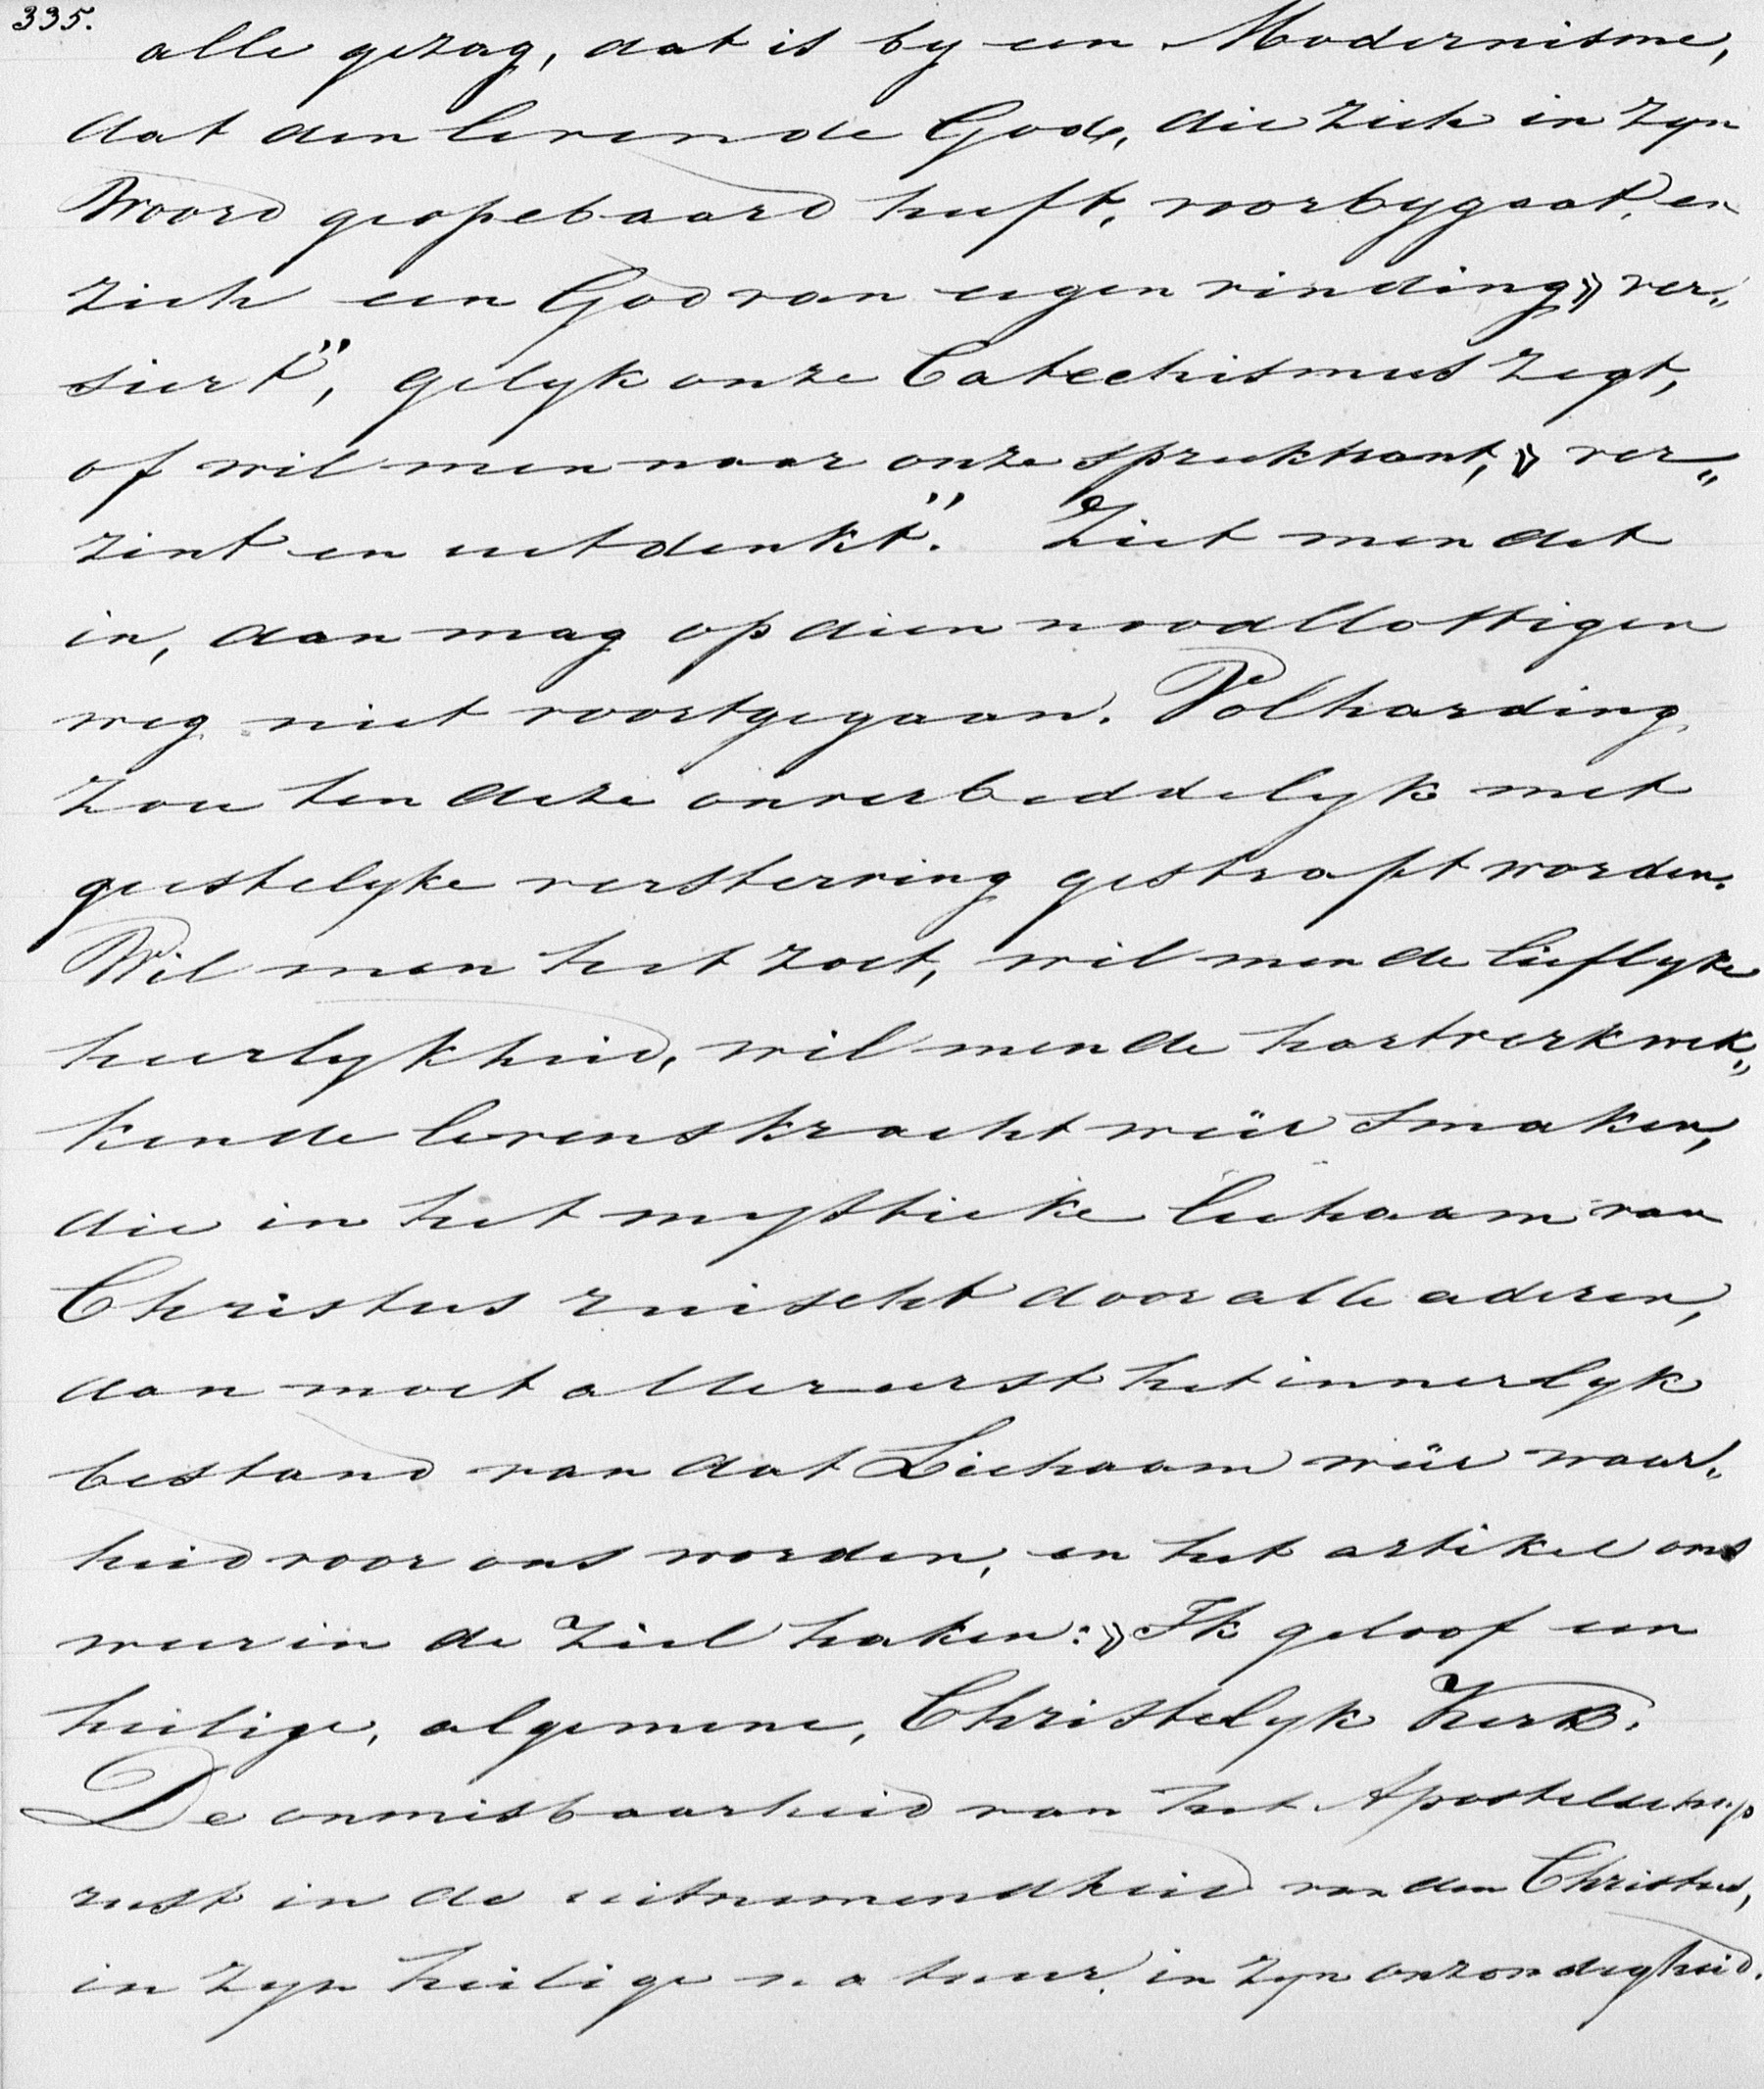 335.
alle gezag, dat is by een Modernisme,
dat den levende God, die zich in zyn
Woord geopebaard heeft, voorbygaat, en
zich een God van eigen vinding » ver„
siert”, gelyk onze Catechismus zegt,
of wil men naar onze spreektrant, » ver„
zint en uitdenkt”. Ziet men dit
in, dan mag op dien noodlottigen
weg niet voortgegaan. Volharding
zou ten deze onverbiddelyk met
geestelyke versterving gestraft worden.
Wil men het zoet, wil men de lieflyke
heerlykheid, wil men de hartverkwik„
kende levenskracht weër smaken,
die in het mystieke lichaam van
Christus ruischt door alle aderen,
dan moet allereerst het innerlyk
bestand van dat Lichaam weër waar„
heid voor ons worden, en het artikel ons
weer in de ziel haken: » Ik geloof een
heilige, algemene, Christelyk Kerk.
De onmisbaarheid van het Apostelschap
rust in de uitnemendheid van den Christus,
in zyn heilige natuur, in zyn onzondigheid.